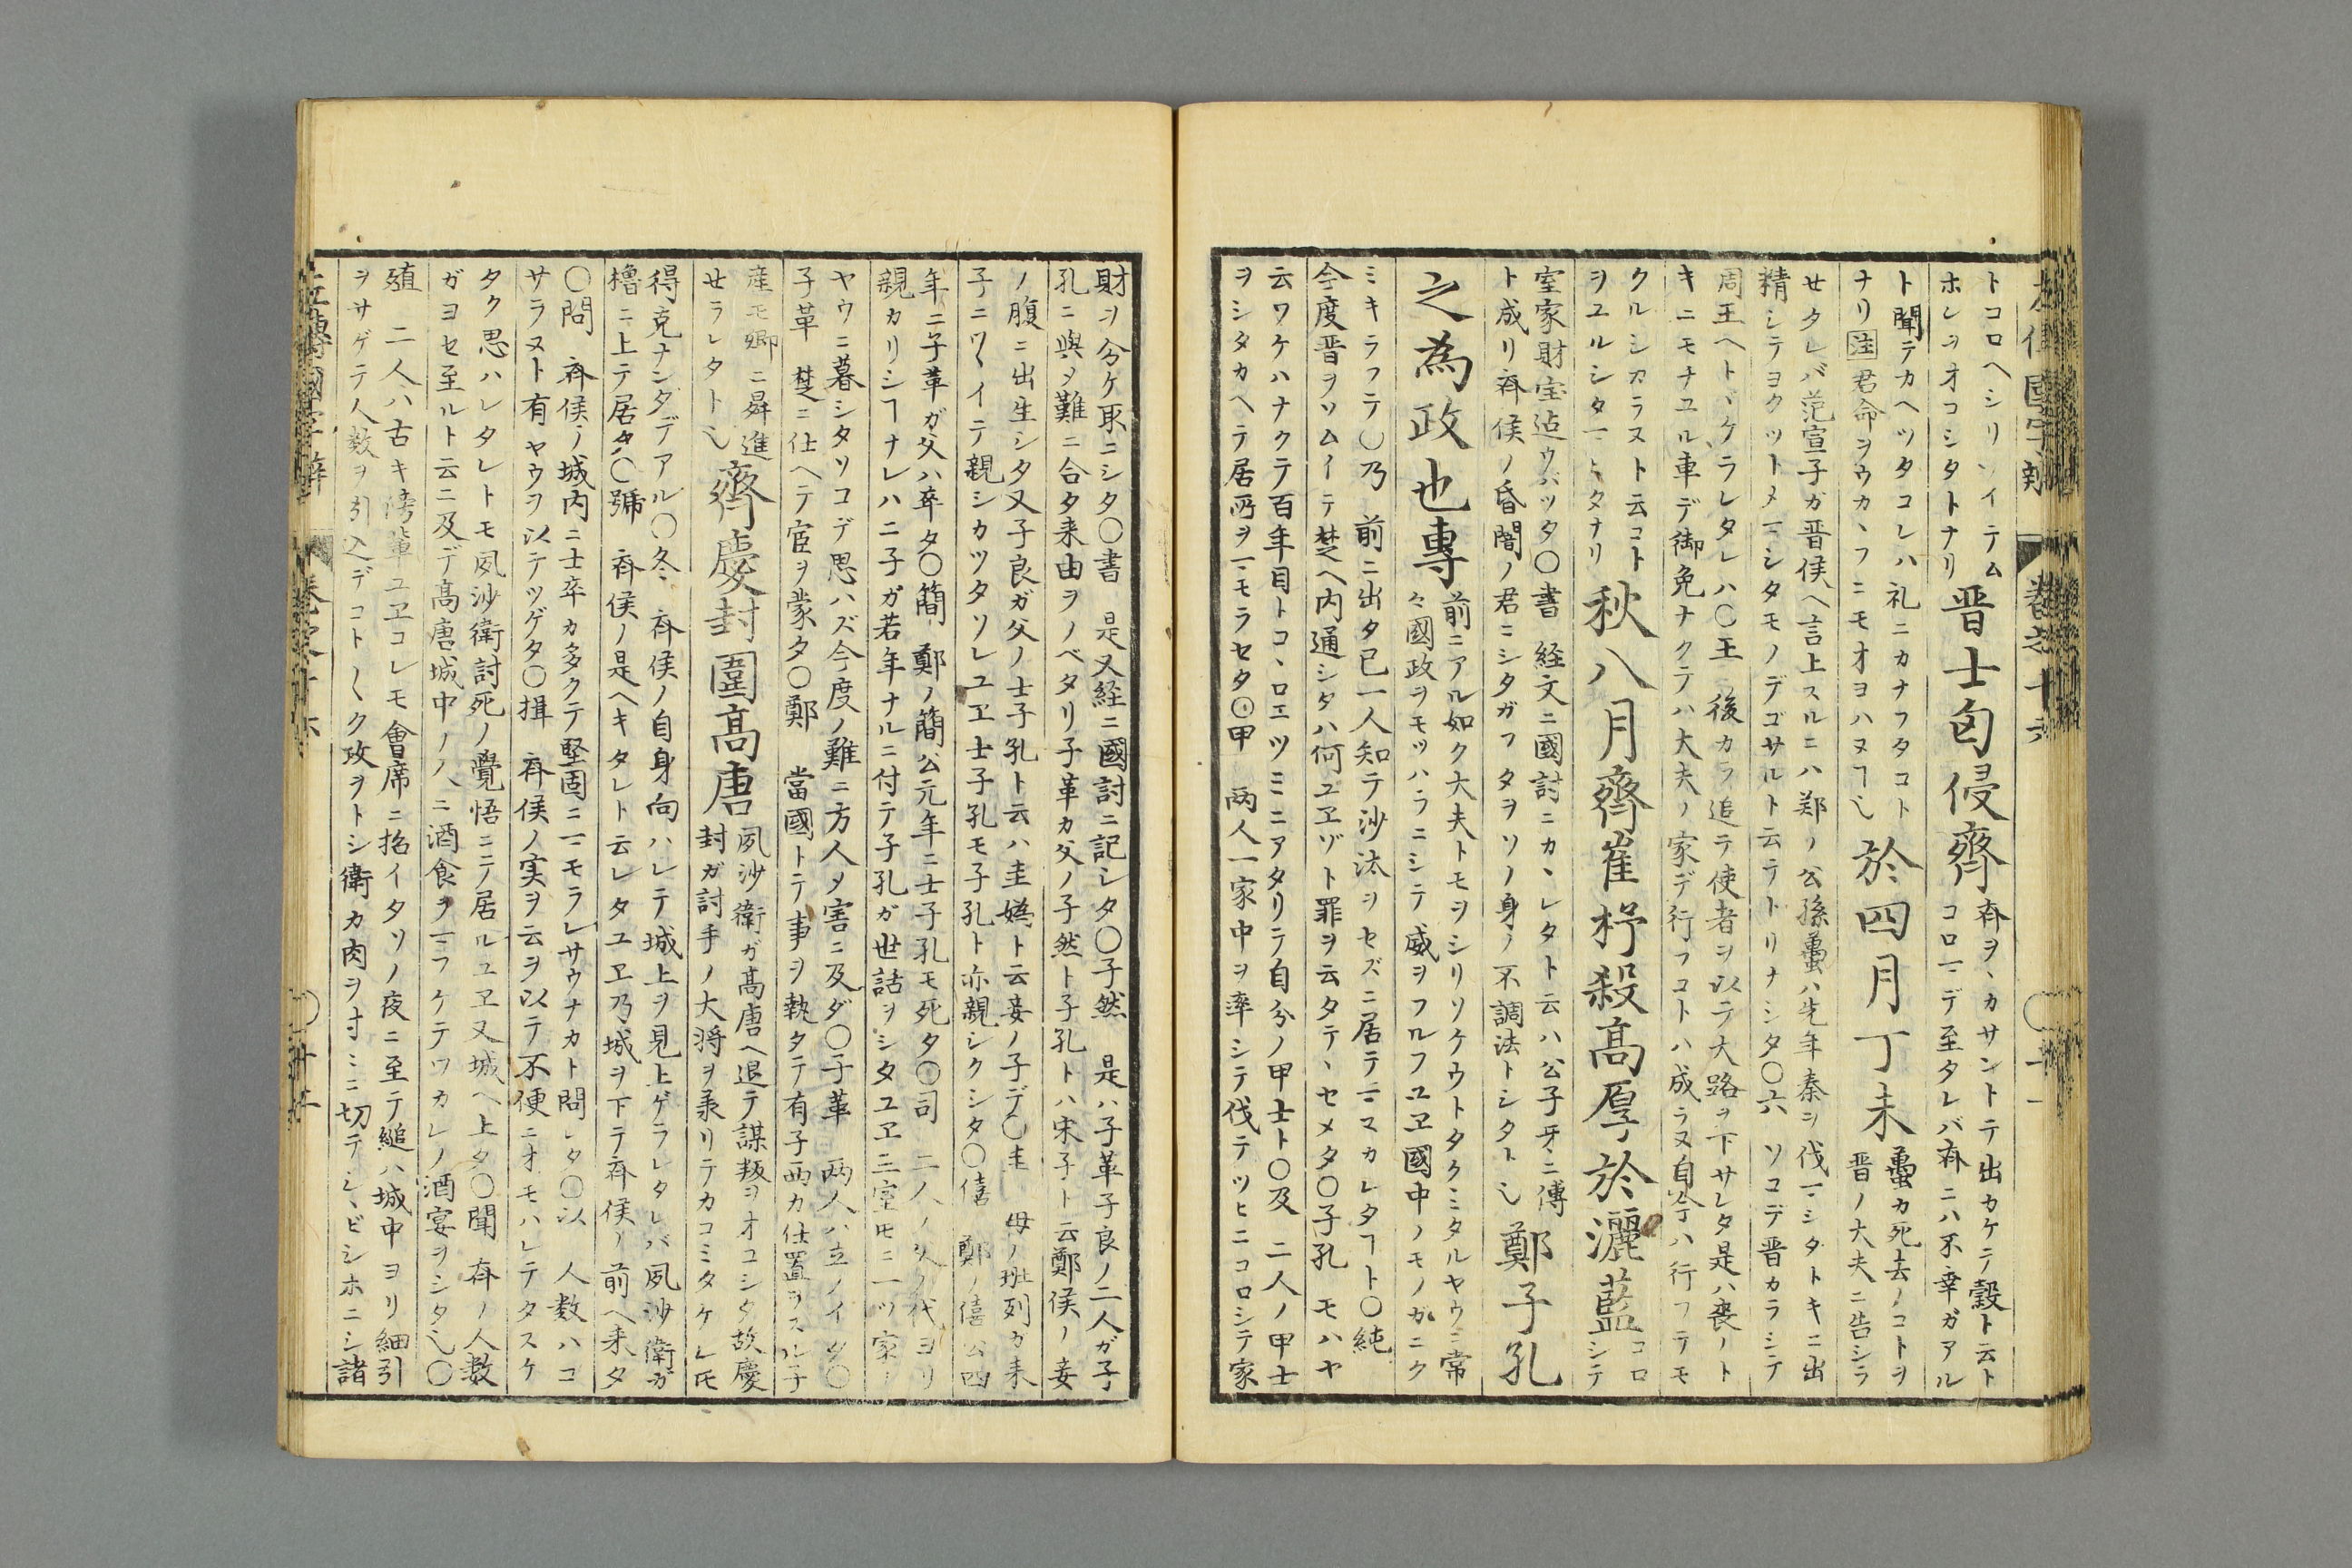 トコロヘシリソイテム
ホレヲオコシタトナリ
晋士匄侵齊
斉ヲヽカサントテ出カケテ穀ト云ト
コロマデ至タレバ斉ニハ不幸ガアル
ト聞テカヘツタコレハ礼ニカナフタコト
ナリ注君命ヲウカヽフニモオヨハヌヿ也
於四月丁未
蠆カ死去ノコトヲ
晋ノ大夫ニ告シラ
せタレバ范宣子ガ晋侯ヘ言上スルニハ郑ノ公孫蠆ハ先年秦ヲ伐マシタトキニ出
精シテヨクツトメマシタモノデゴサルト云テトリナシタ〇六 ソコデ晋カラシテ
周王ヘトヾケラレタレハ〇王 後カラ追テ使者ヲ以テ大路ヲ下サレタ是ハ喪ノト
キニモチユル車デ御免ナクテハ大夫ノ家デ行フコトハ成ラヌ自今ハ行フテモ
クルシカラヌト云コト
ヲユルシタマフタナリ
秋八月齊崔杼殺高厚於灑藍
コロ
シテ
室家財宝迠ウバツタ〇書 経文ニ國討ニカヽレタト云ハ公子牙ニ傅
ト成リ斉侯ノ昏闇ノ君ニシタガフタヲソノ身ノ不調法トシタト也
鄭子孔
之為政也專
前ニアル如ク大夫トモヲシリソケウトタクミタルヤウニ常
々國政ヲモツハラニシテ威ヲフルフユヱ國中ノモノガニク
ミキラフテ〇乃 前ニ出タ已一人知テ沙汰ヲセズニ居テマカレタヿト〇純
今度晋ヲソムイテ楚ヘ内通シタハ何ユヱゾト罪ヲ云タテヽセメタ〇子孔 モハヤ
云ワケハナクテ百年目トコヽロエツミニアタリテ自分ノ甲士ト〇及 二人ノ甲士
ヲシタカヘテ居所ヲマモラセタ〇甲 两人一家中ヲ率シテ伐テツヒニコロシテ家
財ヲ分ケ取ニシタ〇書 是又経ニ國討ニ記レタ〇子然 是ハ子革子良ノ二人ガ子
孔ニ與ヲ難ニ合タ来由ヲノベタリ子革カ父ノ子然ト子孔トハ宋子ト云鄭侯ノ妾
ノ腹ニ出生シタ又子良ガ父ノ士子孔ト云ハ圭嬀ト云妾ノ子デ〇圭 母ノ班列ガ末
子ニツヾイテ親シカツタソレユヱ士子孔モ子孔ト亦親シクシタ〇僖 鄭ノ僖公四
年ニ子革ガ父ハ卒タ〇簡 鄭ノ簡公元年ニ士子孔モ死タ〇司 二人ノ父ノ代ヨリ
親カリシヿナレハニ子ガ若年ナルニ付テ子孔ガ世話ヲシタユヱ三室 ニ一ツ家ノ
ヤウニ暮シタソコデ思ハズ今度ノ難ニ方人ヲ害ニ及ダ〇子革 两人ハ立ノイタ〇
子革 楚ニ仕ヘテ宦ヲ蒙タ〇鄭 當國トテ事ヲ執タテ有子西カ仕置ヲスル子
産モ卿ニ昇進
せラレタト也
齊慶封圍高唐
夙沙衛ガ髙唐ヘ退テ謀叛ヲオコシタ故慶
封ガ討手ノ大将ヲ承リテカコミタケレ𪜈
得克ナンダデアル〇冬 斉侯ノ自身向ハレテ城上ヲ見上ゲラレタレバ夙沙衛ガ
櫓ニ上テ居タ〇號 斉侯ノ是ヘキタレト云レタユヱ乃城ヲ下テ斉侯ノ前ヘ来タ
〇問 斉侯ノ城内ニ士卒カ多クテ堅固ニマモラレサウナカト問レタ〇以 人数ハコ
サラヌト有ヤウヲ以テツゲタ〇揖 斉侯ノ実ヲ云ヲ以テ不便ニオモハレテタスケ
タク思ハレタレトモ夙沙衛討死ノ覺悟ニテ居ルユヱ又城ヘ上タ〇聞 斉ノ人数
ガヨセ至ルト云ニ及デ髙唐城中ノ人ニ酒食ヲ フケテワカレノ酒宴ヲシタ也〇
殖 二人ハ古キ傍輩ユヱコレモ會席ニ招イタソノ夜ニ至テ縋ハ城中ヨリ細引
ヲサゲテ人数ヲ引入デコト〱ク攻ヲトシ衛カ肉ヲ寸ニ切テシヽビシホニシ諸